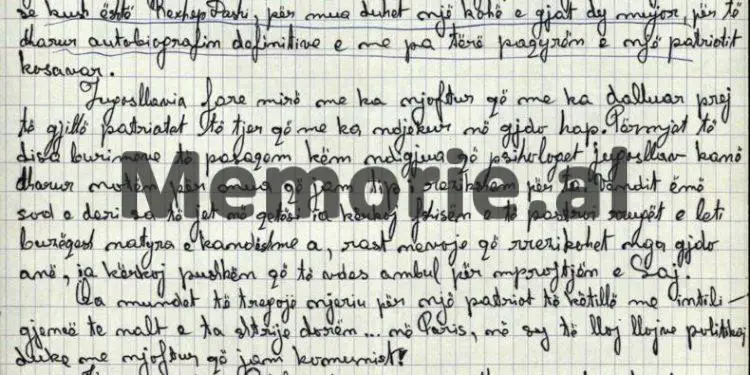 se kush është Rexhep Dashi, për mua duhet një kohë e gjatë dy mujor, për të
dharur autobiografin definitive e me pa tërë pasqyrën e një patriotit
kosovar.
Jugosllavia fare mirë me ka njoftur që me ka dalluar prej
të gjithë patriotat të tjer që me ka ndjekur në gjdo hap. Përmjat të
disa burimeve të pasagom këm ndigjua që psihologet jugosllav kanë
dharur notën për mua që jam tip i rrezikshëm për ta. Vendit êmë
sod e deri sa të jet në qetësi ia kërkoj të pastroi rrugët e leti
burëgest natyra e kandëshme a, rast nevoje që rrezikohet nga gjdo
anë, ia kërskoj pushkën që të vdes ambul për mprojtjën e Saj.
Qa mundet të tregojë njeriu për një patriot të këtillë me intili-
gjencë te nalt e ta shtrije dorëm... në Paris, në sy të lloj llojne politikaj
duke me njoftur që jam komunist!
Memorie.al